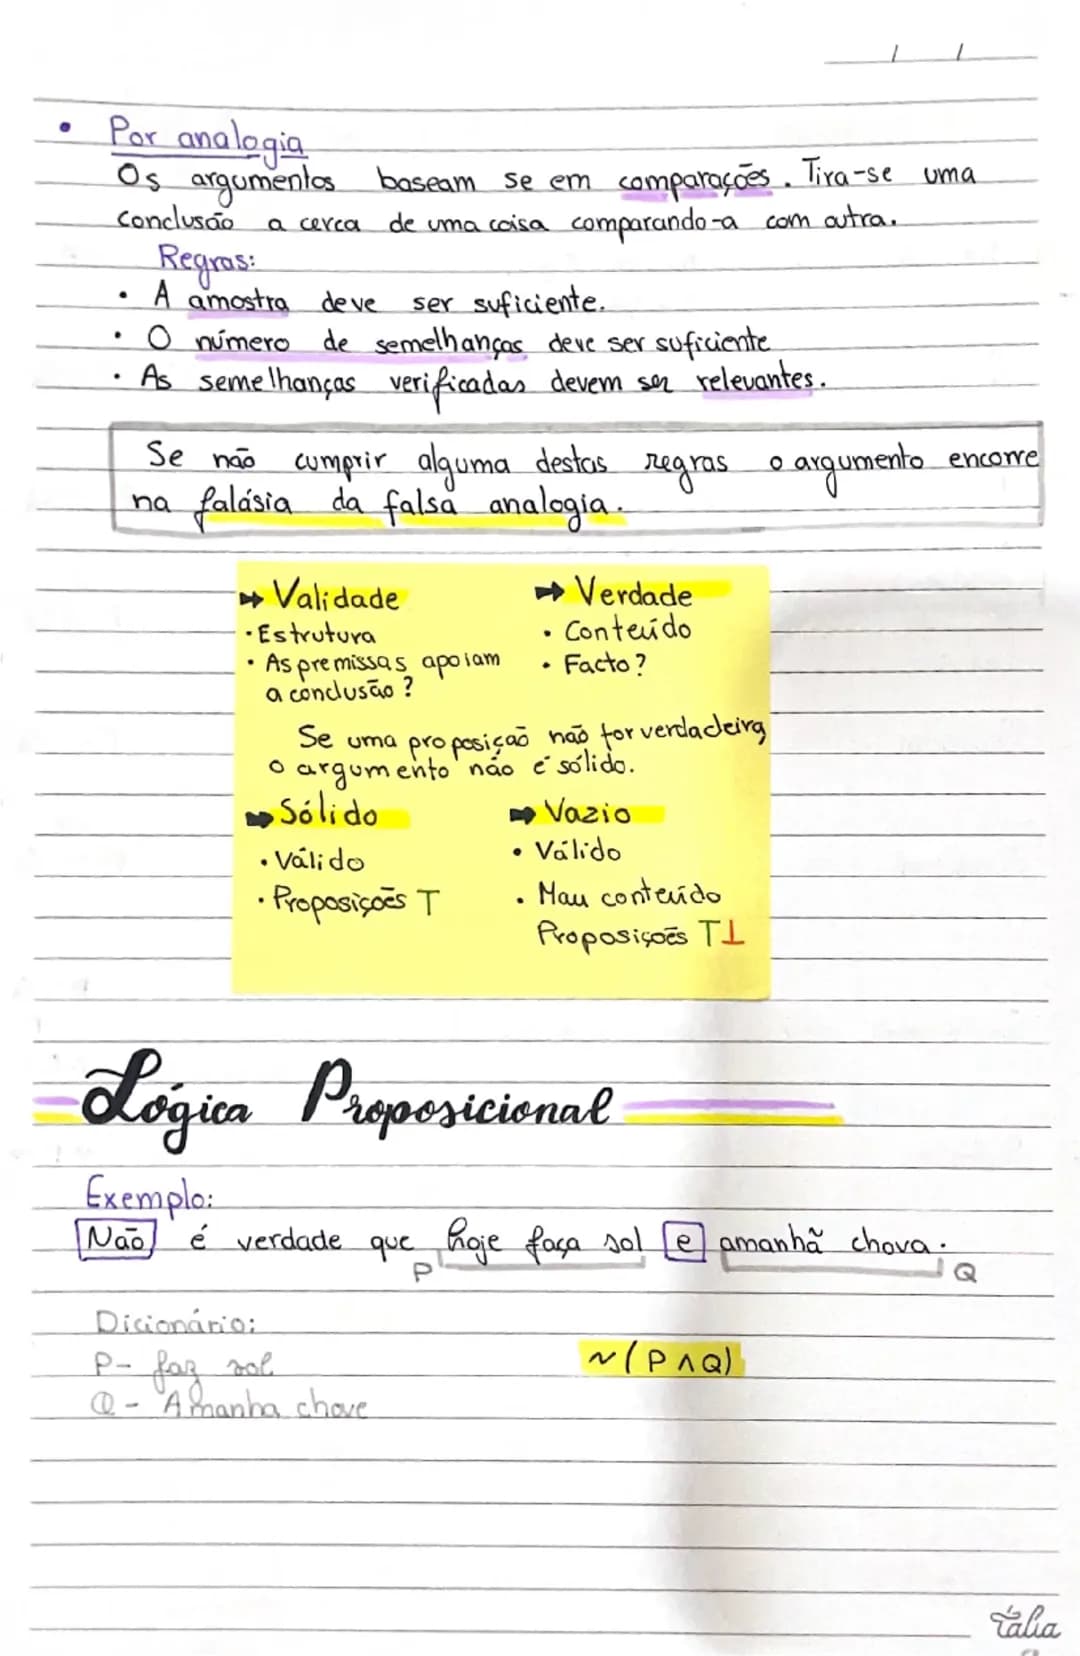 Por analogia
Os argumentos baseam se em comparações. Tira-se uma
conclusão a cerca de uma coisa comparando-a com outra.
Regras:
• A amostra deve ser suficiente.
• O número de semelhanças deve ser suficiente
• As semelhanças verificadas devem ser relevantes.
Se não cumprir alguma destas regras o argumento encorre
na falásia da falsa analogia.
Validade
• Estrutura
• As premissas apoiam
a conclusão?
Verdade
• Conteúdo
• Facto?
Se uma proposição não for verdadeira,
o argumento não é sólido.
Sólido
• Válido
• Proposições T
Vazio
• Válido
• Mau conteúdo
Proposições T⊥
Lógica Proposicional
Exemplo:
Não é verdade que hoje faça sol e amanhã chova.
P Q
Dicionário:
P- faz sol
Q - Amanha chove
~(P∧Q)
Tália